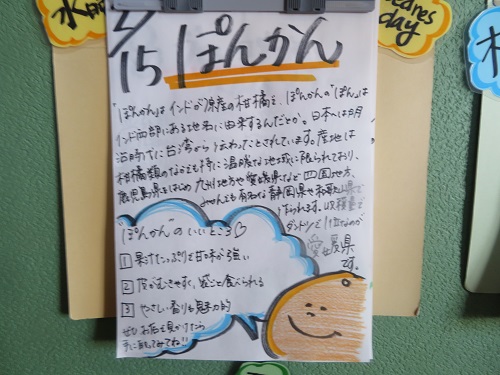 水曜
Wednesday
2/15 ぽんかん
"ぽんかんはインドが原産の柑橘で、ぽんかんの"ぽん"は
インド西部にある地名に由来するんだとか。日本へは明
治時代に台湾から伝わったとされています。産地は
柑橘類のなかでも特に温暖な地域に限られており、
鹿児島県をはじめ九州地方や愛媛県など四国地方、
みかんも有名な静岡県や和歌山県で
作られます。収穫量で
ダントツで1位なのが
愛媛県
です。
"ぽんかん"のいいところ♡
1 果汁たっぷりで甘味が強い
2 皮がむきやすく、袋ごと食べられる
3 やさしい香りも魅力的
ぜひお店で見かけたら
手に取ってみてね!!
木